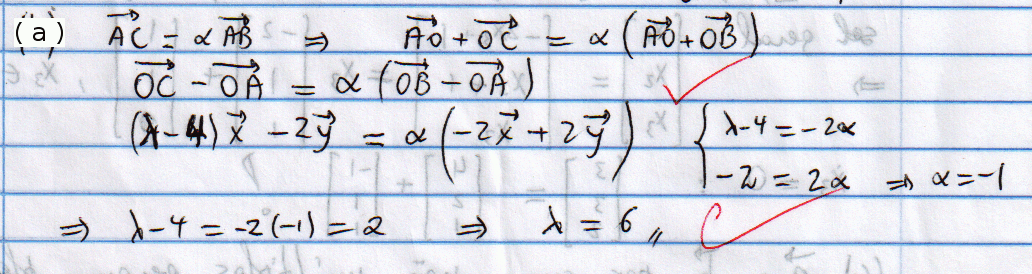 (a) $\overrightarrow{AC} = \alpha \overrightarrow{AB}$ ⇒ $\overrightarrow{AO} + \overrightarrow{OC} = \alpha (\overrightarrow{AO} + \overrightarrow{OB})$
$\overrightarrow{OC} - \overrightarrow{OA} = \alpha (\overrightarrow{OB} - \overrightarrow{OA})$
$(\lambda - 4)\vec{x} - 2\vec{y} = \alpha (-2\vec{x} + 2\vec{y})$ { $\lambda - 4 = -2\alpha$
$-2 = 2\alpha$ ⇒ $\alpha = -1$
⇒ $\lambda - 4 = -2(-1) = 2$ ⇒ $\lambda = 6$ //